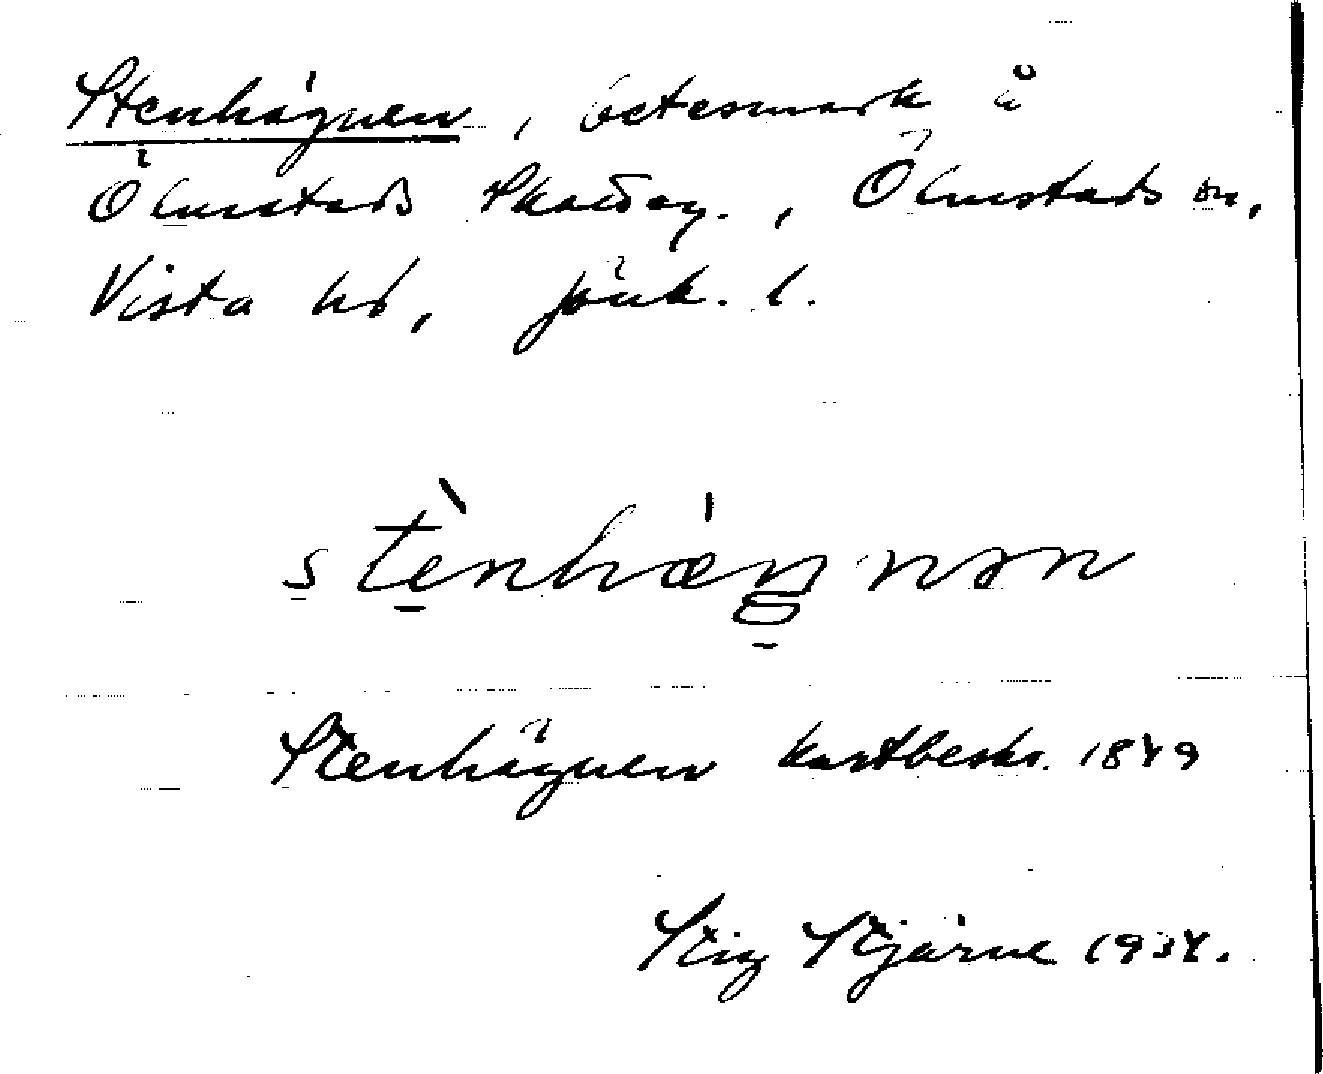 Stenhägnen, betesmark å
Ölmstads Skatteg., Ölmstads sn,
Vista hd, Jönk. l.
stènhæŋnən
Stenhägnen kartbeskr. 1849
Stig Stjärne 1934.